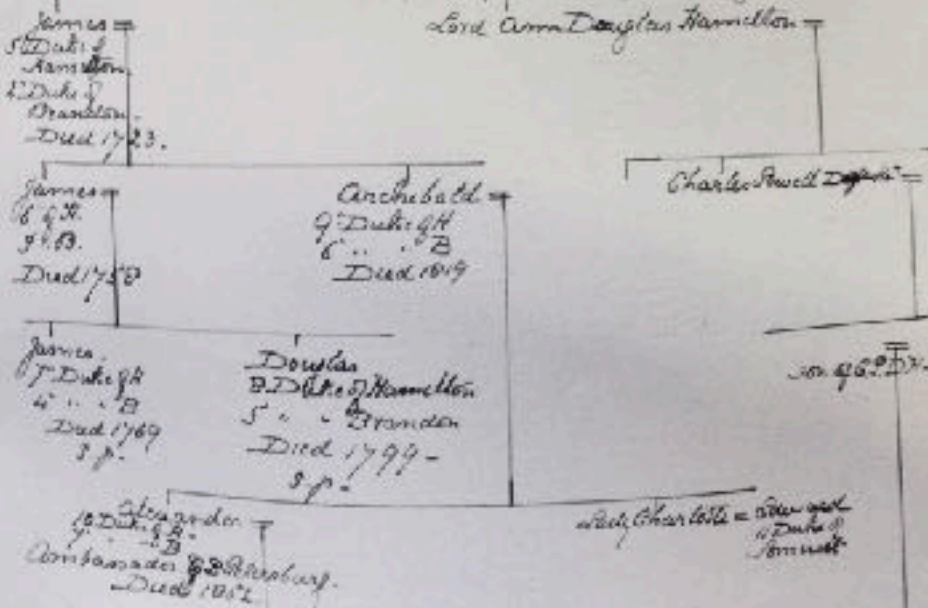 James =
5 Duke of
Hamilton
2 Duke of
Brandon -
Died 1723.
Lord Ann Douglas Hamilton =
James =
6 of H.
3 " B.
Died 1758
Archebald =
9 Duke of H
6 " " B
Died 1819
Charles Powell =
James.
7 Duke of H
4 " " B
Died 1769
s.p -
Douglas
8 Duke of Hamilton
5 " " Brandon
Died 1799 -
s.p -
son of C.P.D.H -
Alexander =
10 Duke of H -
7 " " B
Ambassador Petersburg.
Died 1852
Lady Charlotte = Edward
11 Duke of
Somerset